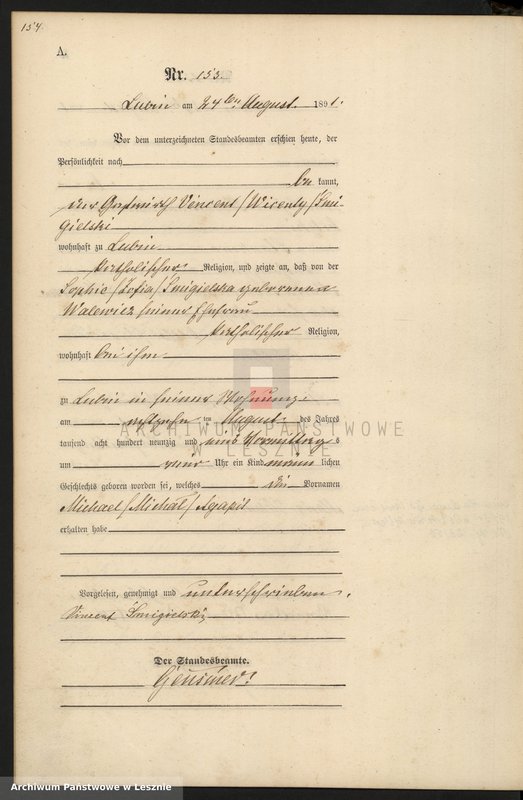 154.
A.
Nr. 153.
Lubin am 24ten August 1891.
Vor dem unterzeichneten Standesbeamten erschien heute, der
Persönlichkeit nach
be kannt,
der Gastwirth Vincent /Wicenty/ Śmi
gielski
wohnhaft zu Lubin
katholischer Religion, und zeigte an, daß von der
Sophie /Zofia/ Śmigielska geborenen
Walewicz seiner Ehefrau
katholischer Religion,
wohnhaft bei ihm
zu Lubin in seiner Wohnung
am achtzehn ten August des Jahres
tausend acht hundert neunzig und eins Vormittags
um vier Uhr ein Kind männ lichen
Geschlechts geboren worden sei, welches die Vornamen
Michael /Michał/ Agapit
erhalten habe
Vorgelesen, genehmigt und unterschrieben.
Vincent Śmigielski
Der Standesbeamte.
ARCHIWUM PAŃSTWOWE
W LESZNIE
Archiwum Państwowe w Lesznie